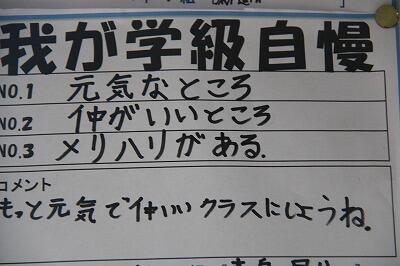 我が学級自慢
NO.1 元気なところ
NO.2 仲がいいところ
NO.3 メリハリがある.
コメント
もっと元気で仲いいクラスにしようね.